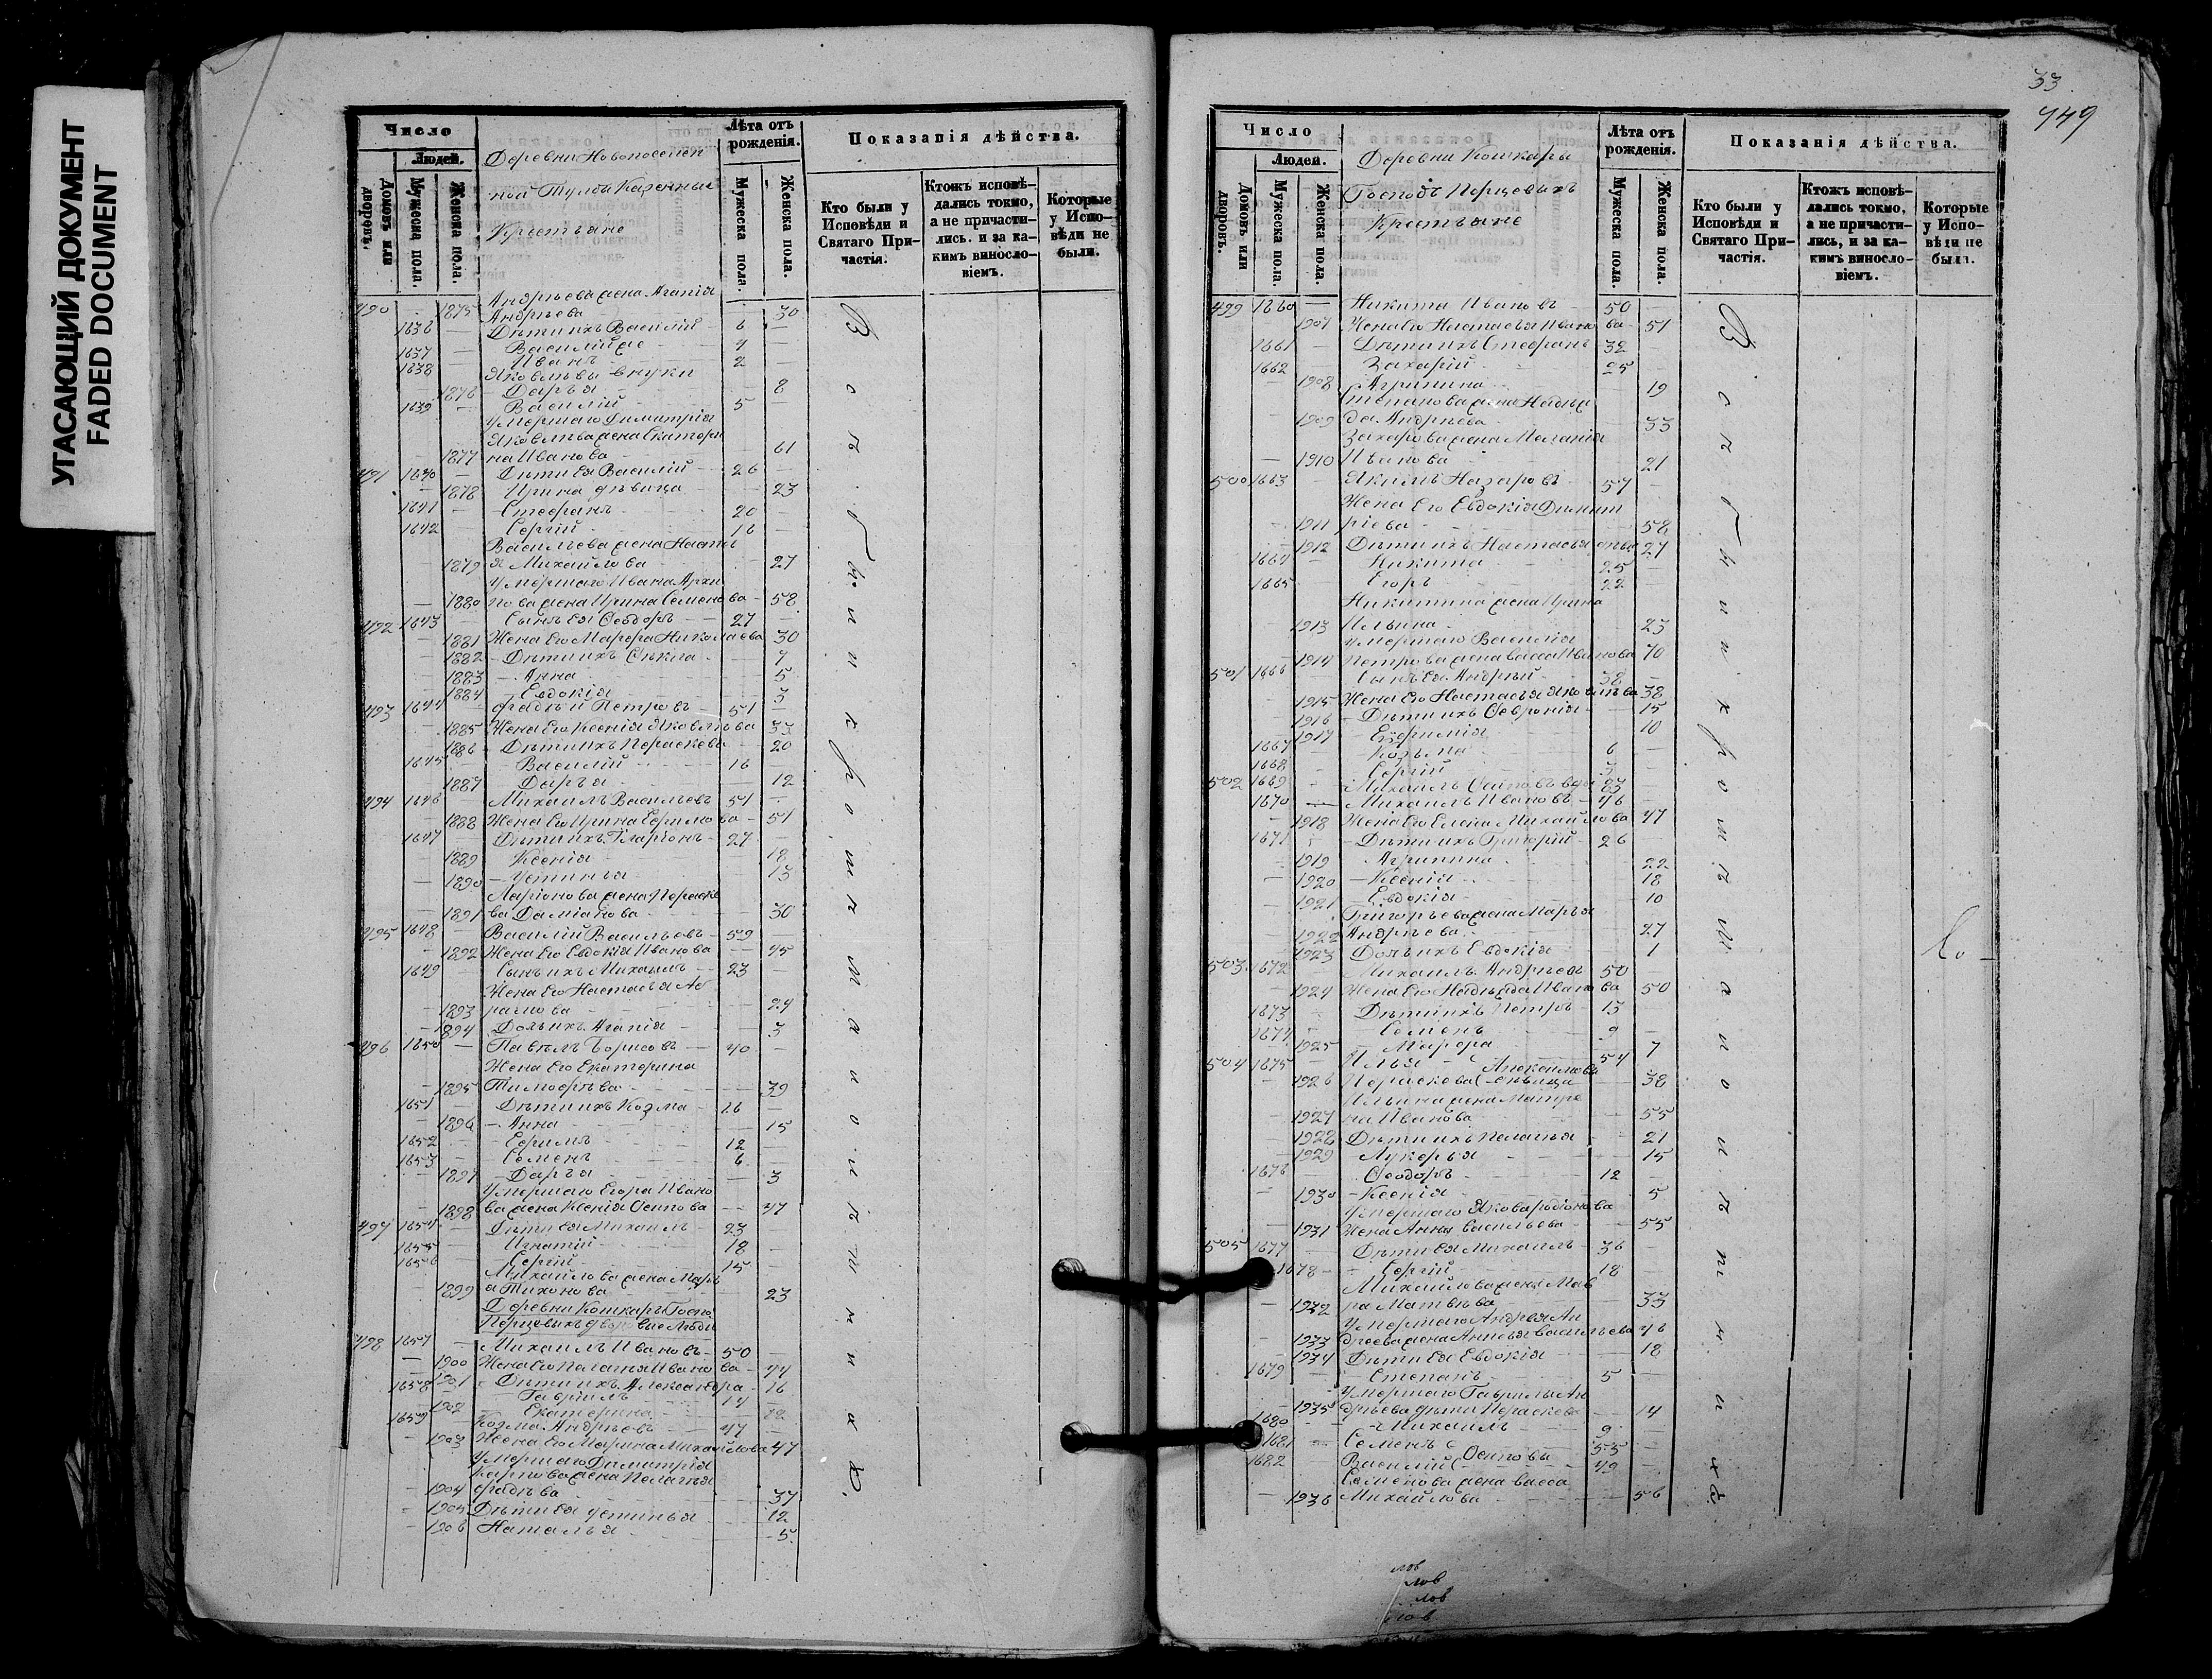 УГАСАЮЩИЙ ДОКУМЕНТ
FADED DOCUMENT
Число
Людей.
Домовъ или дворовъ.
Мужеска пола.
Женска пола.
Деревни Новопоселен
ной Тулбы Казенные
Крестьяне
Лѣта отъ рожденія.
Мужеска пола.
Женска пола.
Показанія дѣйства.
Кто были у Исповѣди и Святаго Причастія.
Ктожъ исповѣдались токмо, а не причастились. и за какимъ винословіемъ.
Которые у Исповѣди не были.
Андрѣева жена Агапія
490 1875 Андрѣева 30
1636 Дѣти ихъ Василій 6
1637 Василій же 4
1638 Иванъ 2
Яковлевы внуки
1876 Дарья 8
1639 Василій 5
Умершаго Димитрія
Яковлева жена Екатери
1877 на Иванова 61
491 1640 Дѣти ея Василій 26
1878 Ирина дѣвица 23
1641 Стефанъ 20
1642 Сергій 16
Васильева жена Настась
1879 я Михайлова 27
Умершаго Ивана Архи
1880 пова жена Ирина Семенова 58
492 1643 Сынъ ея Ѳеодоръ 27
1881 Жена Его Марѳа Николаева 30
1882 Дѣти ихъ Ѳёкла 7
1883 Анна 5
1884 Евдокія 3
493 1644 Фадѣй Петровъ 51
1885 Жена Его Ксенія Яковлева 33
1886 Дѣти ихъ Параскева 20
1645 Василій 16
1887 Дарья 12
494 1646 Михаилъ Васильевъ 51
1888 Жена Его Ирина Ефимова 51
1647 Дѣти ихъ Іларіонъ 27
1889 Ксенія 18
1890 Устинья 13
Ларіонова жена Параске
1891 ва Даміанова 30
495 1648 Василій Васильевъ 59
1892 Жена Его Евдокія Иванова 45
1649 Сынъ ихъ Михаилъ 23
Жена Его Настасья Аб
1893 рамова 24
1894 Дочь ихъ Агапія 3
496 1650 Павелъ Борисовъ 40
Жена Его Екатерина
1895 Тимофѣева 39
1651 Дѣти ихъ Козма 16
1896 Анна 15
1652 Ефимъ 12
1653 Семенъ 6
1897 Дарья 3
Умершаго Егора Ивано
1898 ва жена Ксенія Осипова 47
497 1654 Дѣти ея Михаилъ 23
1655 Игнатій 18
1656 Сергій 15
Михайлова жена Марь
1899 я Тихонова 23
Деревни Кошкаръ Госпо
Перцевыхъ дворовые Люди
498 1657 Михаилъ Ивановъ 50
1900 Жена Его Пелагея Иванова 44
1901 Дѣти ихъ Александра 16
1658 Гавріилъ 14
1902 Екатерина 12
1659 Козма Андрѣевъ 47
1903 Жена Его Марина Михайлова 47
Умершаго Димитрія
Карпова жена Пелагья
1904 Фадѣева 37
1905 Дѣти ея Устинья 12
1906 Наталья 5
33
449
Число
Людей.
Домовъ или дворовъ.
Мужеска пола.
Женска пола.
Деревни Кошкары
Господъ Перцевыхъ
Крестьяне
Лѣта отъ рожденія.
Мужеска пола.
Женска пола.
Показанія дѣйства.
Кто были у Исповѣди и Святаго Причастія.
Ктожъ исповѣдались токмо, а не причастились, и за какимъ винословіемъ.
Которые у Исповѣди не были.
499 1660 Никита Ивановъ 50
1907 Жена Его Настасья Иванова 51
1661 Дѣти ихъ Стефанъ 32
1662 Захарій 25
1908 Агрипина 19
Степанова жена Надеж
1909 да Андрѣева 33
Захарова жена Меланія
1910 Иванова 21
500 1663 Якимъ Назаровъ 57
Жена Его Евдокія Димит
1911 ріева 58
1912 Дѣти ихъ Настасья 27
1664 Никита 25
1665 Егоръ 22
Никитина жена Ирина
1913 Ильина 23
Умершаго Василія
1914 Петрова жена Васса Иванова 70
501 1666 Сынъ ея Андрей 38
1915 Жена Его Настасья Яковлева 38
1916 Дѣти ихъ Ѳевронія 15
1917 Евфимія 10
1667 Козьма 6
1668 Сергій 3
502 1669 Михаилъ Осиповъ 83
1670 Михаилъ Ивановъ 46
1918 Жена Его Елена Михайлова 47
1671 Дѣти ихъ Григорій 26
1919 Агрипина 22
1920 Ксенія 18
1921 Евдокія 10
Григорьева жена Марья
1922 Андрѣева 27
1923 Дочь ихъ Евдокія 1
503 1672 Михаилъ Андрѣевъ 50
1924 Жена Его Надежда Иванова 50
1673 Дѣти ихъ Петръ 13
1674 Семенъ 9
1925 Марѳа 7
504 1675 Илья 54
1926 Параскева дѣвица 38
Ильина жена Матре
1927 на Иванова 55
1928 Дѣти ихъ Пелагья 21
1929 Лукерья 15
1676 Ѳеодоръ 12
1930 Ксенія 5
Умершаго Якова Родіонова
1931 Жена Анна Васильева 55
505 1677 Дѣти ея Михаилъ 36
1678 Сергій 18
Михайлова жена Мав
1932 ра Матвѣева 33
Умершаго Андрея Ан
1933 дреева жена Анисья Васильева 46
1934 Дѣти ея Евдокія 18
1679 Степанъ 5
Умершаго Гаврилы Ан
1935 дрѣева дѣти Параскева 14
1680 Михаилъ 9
1681 Семенъ 53
1682 Василій Осиповы 49
Семенова жена Васса
1936 Михайлова 56
лов
лов
лов
лов